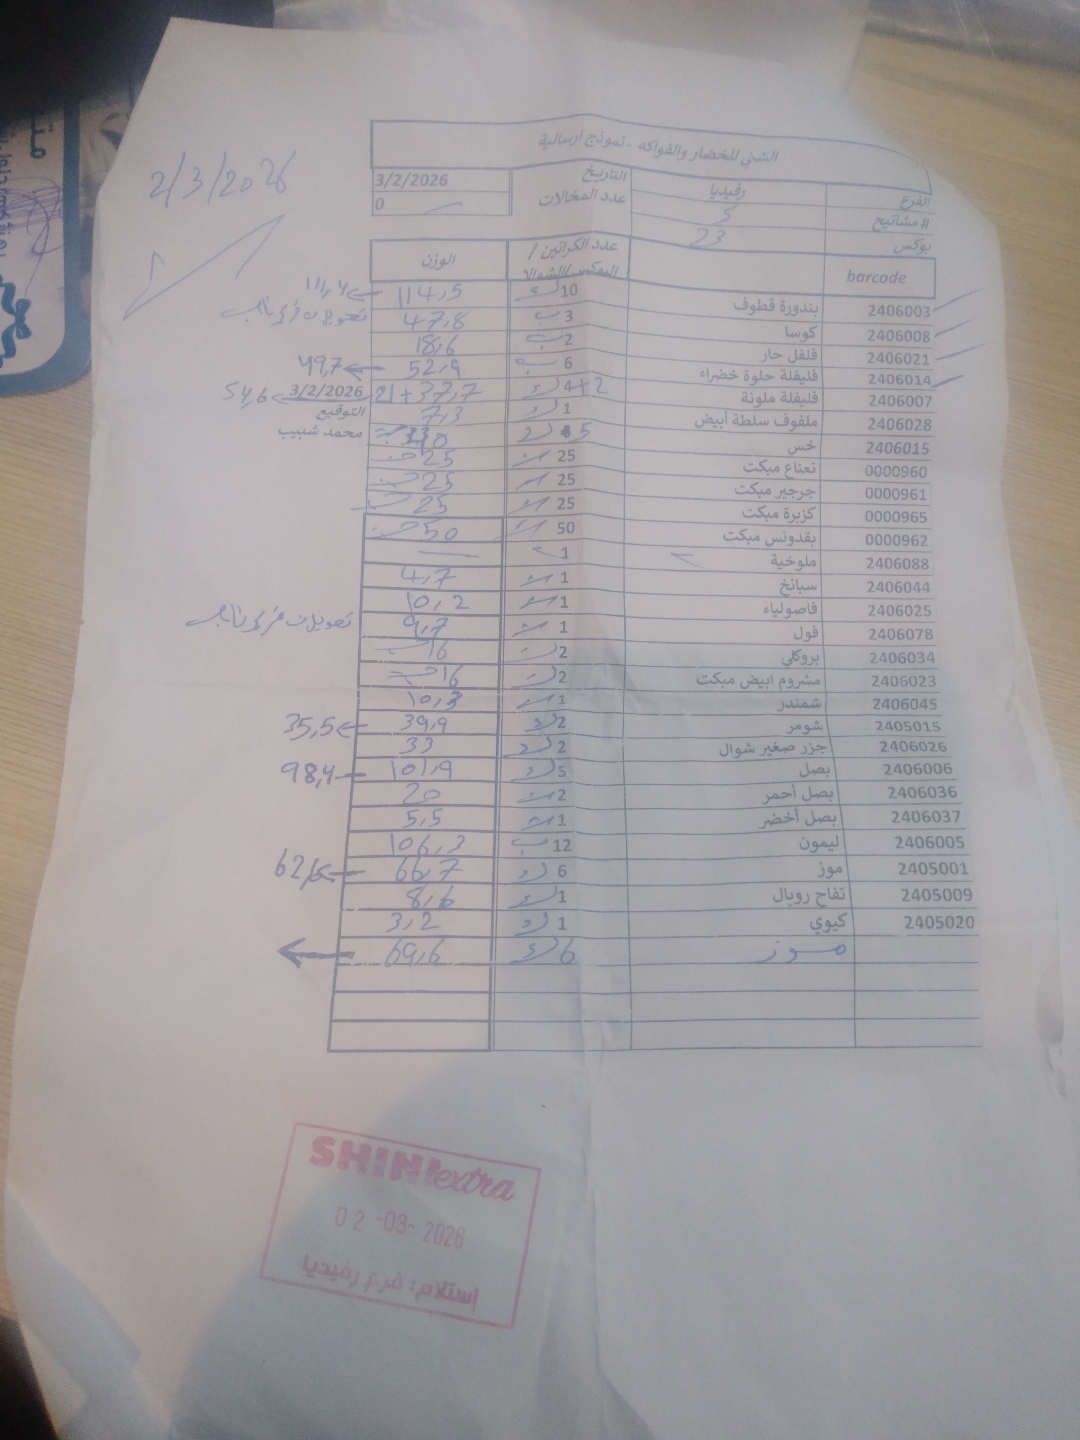 2/3/2026
الشني للخضار والفواكه - نموذج ارسالية
الفرع رفيديا التاريخ 3/2/2026
# مشاتيح 3 عدد المخالات 0
بوكس 23
barcode عدد الكراتين / البوكس/الشوال الوزن
2406003 بندورة قطوف 10 114,5
2406008 كوسا 3 47,8
2406021 فلفل حار 2 18,6
2406014 فليفلة حلوة خضراء 6 52,9 49,7
2406007 فليفلة ملونة 4+2 21+37,7 3/2/2026 54,6
2406028 ملفوف سلطة أبيض 1 7,3 التوقيع
2406015 خس 5 محمد شبيب
0000960 نعناع مبكت 25 25
0000961 جرجير مبكت 25 25
0000965 كزبرة مبكت 25 25
0000962 بقدونس مبكت 50 50
2406088 ملوخية 1
2406044 سبانخ 1 4,7
2406025 فاصولياء 1 10,2
2406078 فول 1 9,7
2406034 بروكلي 2 16
2406023 مشروم ابيض مبكت 2 16
2406045 شمندر 1 10,3
2405015 شومر 2 39,9 35,5
2406026 جزر صغير شوال 2 33
2406006 بصل 5 101,9 98,4
2406036 بصل أحمر 2 20
2406037 بصل أخضر 1 5,5
2406005 ليمون 12 106,3
2405001 موز 6 66,7
2405009 تفاح رويال 1 8,6
2405020 كيوي 1 3,2
موز 6 69,6
SHINI extra
02 -03- 2026
إستلام: فرع رفيديا